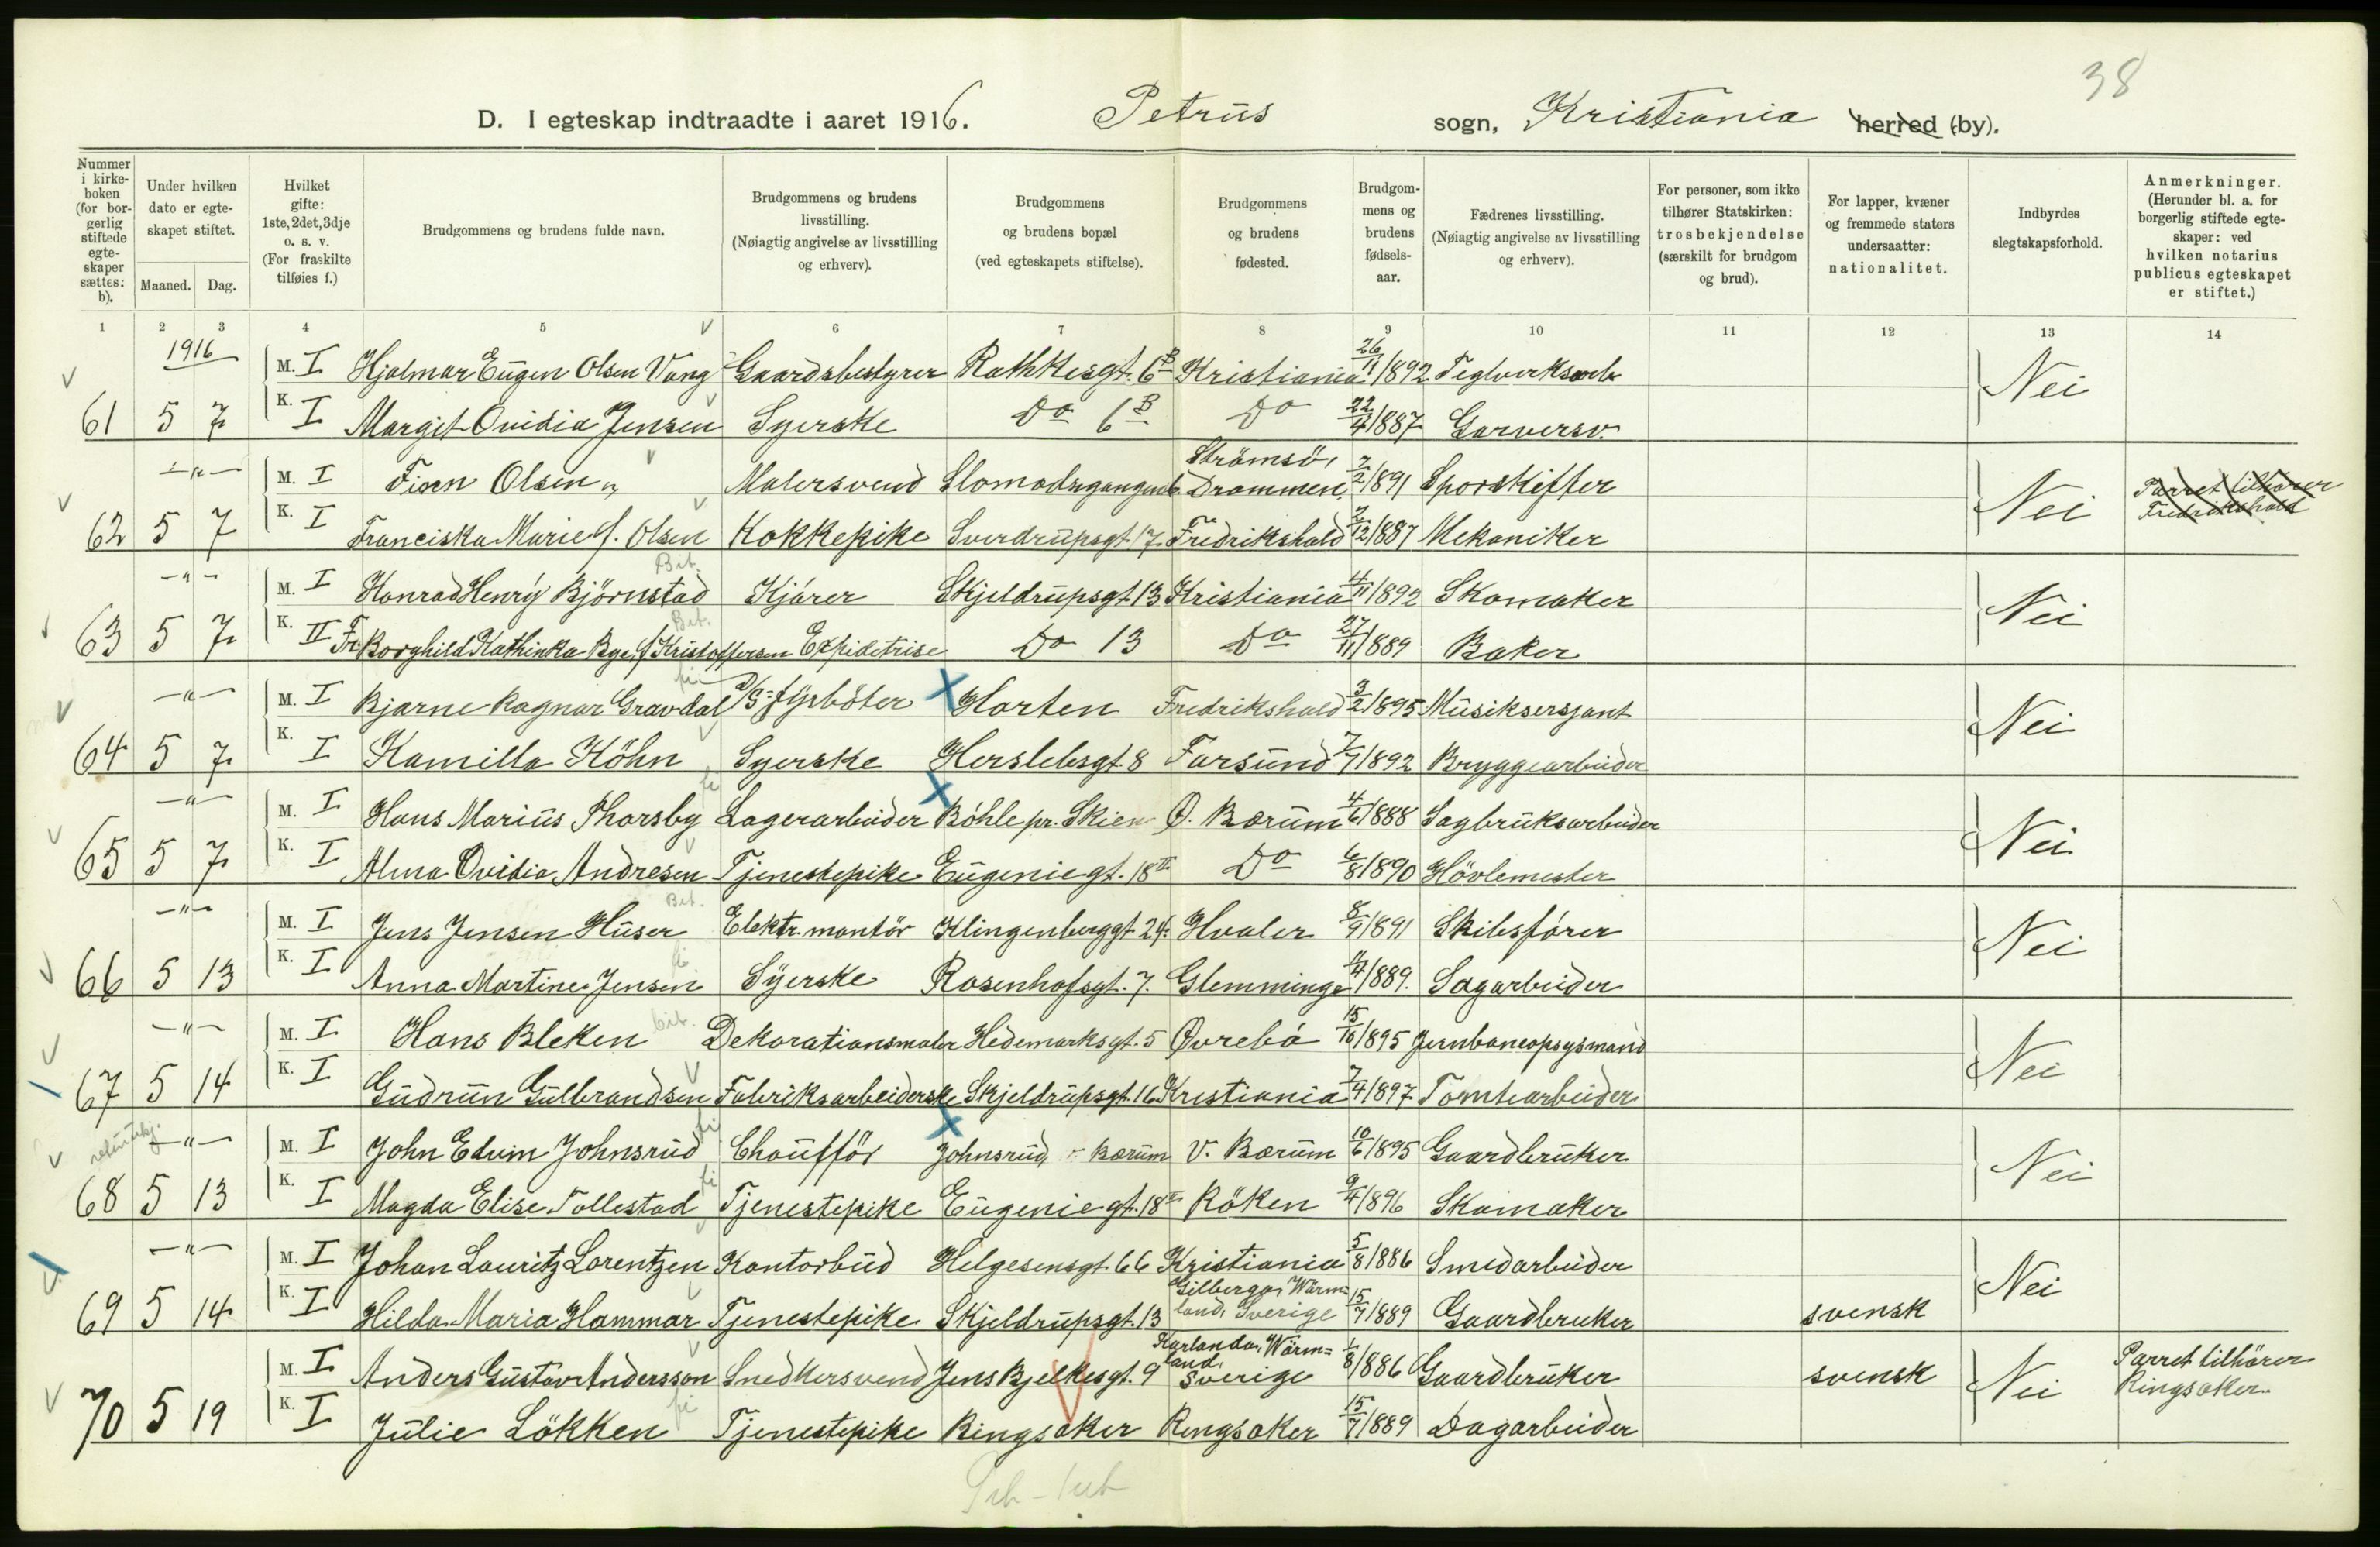 38
D. I egteskap indtraadte i aaret 1916. Petrus sogn, Kristiania herred (by).
Nummer i kirkeboken (for borgerlig stiftede egteskaper sættes: b).
Under hvilken dato er egteskapet stiftet.
Maaned. Dag.
Hvilket gifte: 1ste, 2det, 3dje o. s. v. (For fraskilte tilføies f.)
Brudgommens og brudens fulde navn.
Brudgommens og brudens livsstilling. (Nøiagtig angivelse av livsstilling og erhverv).
Brudgommens og brudens bopæl (ved egteskapets stiftelse).
Brudgommens og brudens fødested.
Brudgommens og brudens fødselsaar.
Fædrenes livsstilling. (Nøiagtig angivelse av livsstilling og erhverv).
For personer, som ikke tilhører Statskirken: trosbekjendelse (særskilt for brudgom og brud).
For lapper, kvæner og fremmede staters undersaatter: nationalitet.
Indbyrdes slegtskapsforhold.
Anmerkninger. (Herunder bl. a. for borgerlig stiftede egteskaper: ved hvilken notarius publicus egteskapet er stiftet.)
1 2 3 4 5 6 7 8 9 10 11 12 13 14
1916 M. I Hjalmar Eugen Olsen Vang Gaardsbestyrer Rathkesgt. 6B Kristiania 26/11 1892 Teglverksarb Nei
61 5 7 K. I Margit Ovidia Jensen Syerske Do 6B Do 22/4 1887 Garversv.
-"- M. I Olsen Malersvend Strömsö, Drammen, 7/2 1891 Sporskifter Nei Parret tilhører Fredrikshald
62 5 7 K. I Franciska Marie Olsen Kokkepike Sverdrupsgt. 17 Fredrikshald 2/12 1887 Mekaniker
-"- M. I Konrad Henry Björnstad Kjörer Skjeldrupsgt. 13 Kristiania 4/11 1892 Skomaker Nei
63 5 7 K. II Fr. Borghild Kathinka Bye, f. Kristoffersen Expiditrise Do 13 Do 27/11 1889 Baker
-"- M. I Bjarne Ragnar Gravdal D/S fyrböter Horten Fredrikshald 3/2 1895 Musiksersjant Nei
64 5 7 K. I Kamilla Köhn Syerske Herslebsgt. 8 Farsund 7/7 1892 Bryggearbeider
-"- M. I Hans Marius Thorsby Lagerarbeider Böhle pr. Skien Ø. Bærum 4/6 1888 Sagbruksarbeider Nei
65 5 7 K. I Alma Ovidia Andresen Tjenestepike Eugeniegt. 18 II Do 6/8 1890 Hövlemester
-"- M. I Jens Jensen Huser Elektr. montör Klingenberggt. 24 Hvaler 8/9 1891 Skibsförer Nei
66 5 13 K. I Anna Martine Jensen Syerske Rosenhofsgt. 7. Glemminge 11/4 1889. Sagarbeider
-"- M. I Hans Bleken Dekorationsmaler Hedemarksgt. 5 Øvrebö 15/10 1895 Jernbaneopsynsmand Nei
67 5 14 K. I Gudrun Gulbrandsen Fabriksarbeiderske Skjeldrupsgt. 16 Kristiania 7/4 1897 Tomtearbeider
-"- M. I John Edvin Johnsrud Chaufför Johnsrud, Bærum V. Bærum 10/6 1895 Gaardbruker Nei
68 5 13 K. I Magda Elise Tollestad Tjenestepike Eugeniegt. 18 II Röken 9/4 1896 Skomaker
-"- M. I Johan Lauritz Lorentzen Kontorbud Helgesensgt. 66 Kristiania 5/8 1886 Smedarbeider Nei
69 5 14 K. I Hilda Maria Hammar Tjenestepike Skjeldrupsgt. 13 Gilberga, Wärmland, Sverige 15/7 1889 Gaardbruker svensk
M. I Anders Gustav Andersson Snedkersvend Jens Bjelkesgt. 9 Karlanda, Wärmland, Sverige 1/8 1886 Gaardbruker svensk Nei Parret tilhörer Ringsaker.
70 5 19 K. I Julie Lökken Tjenestepike Ringsaker Ringsaker 15/7 1889 Dagarbeider